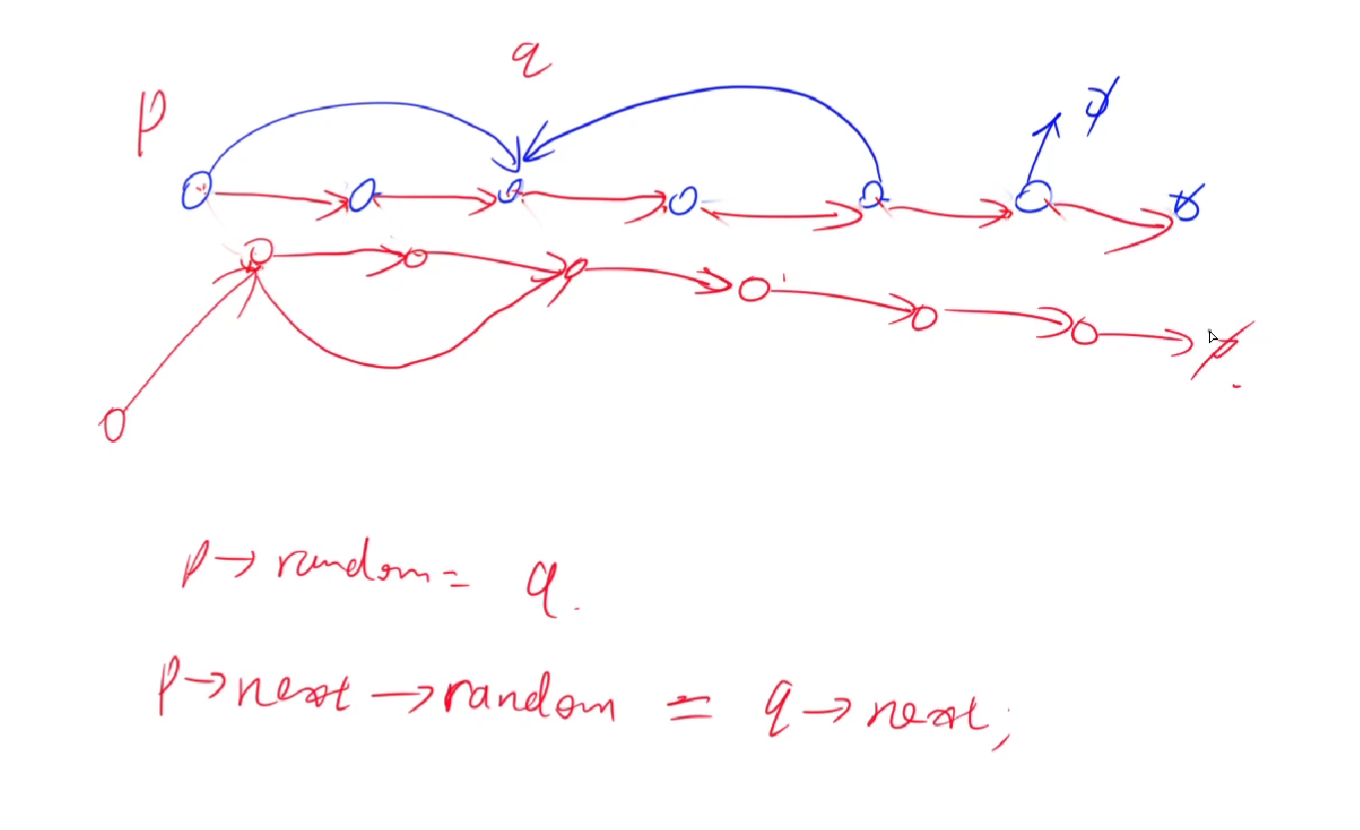 q
p
∅
∅
∅.
p→random = q.
p→next→random = q→next;